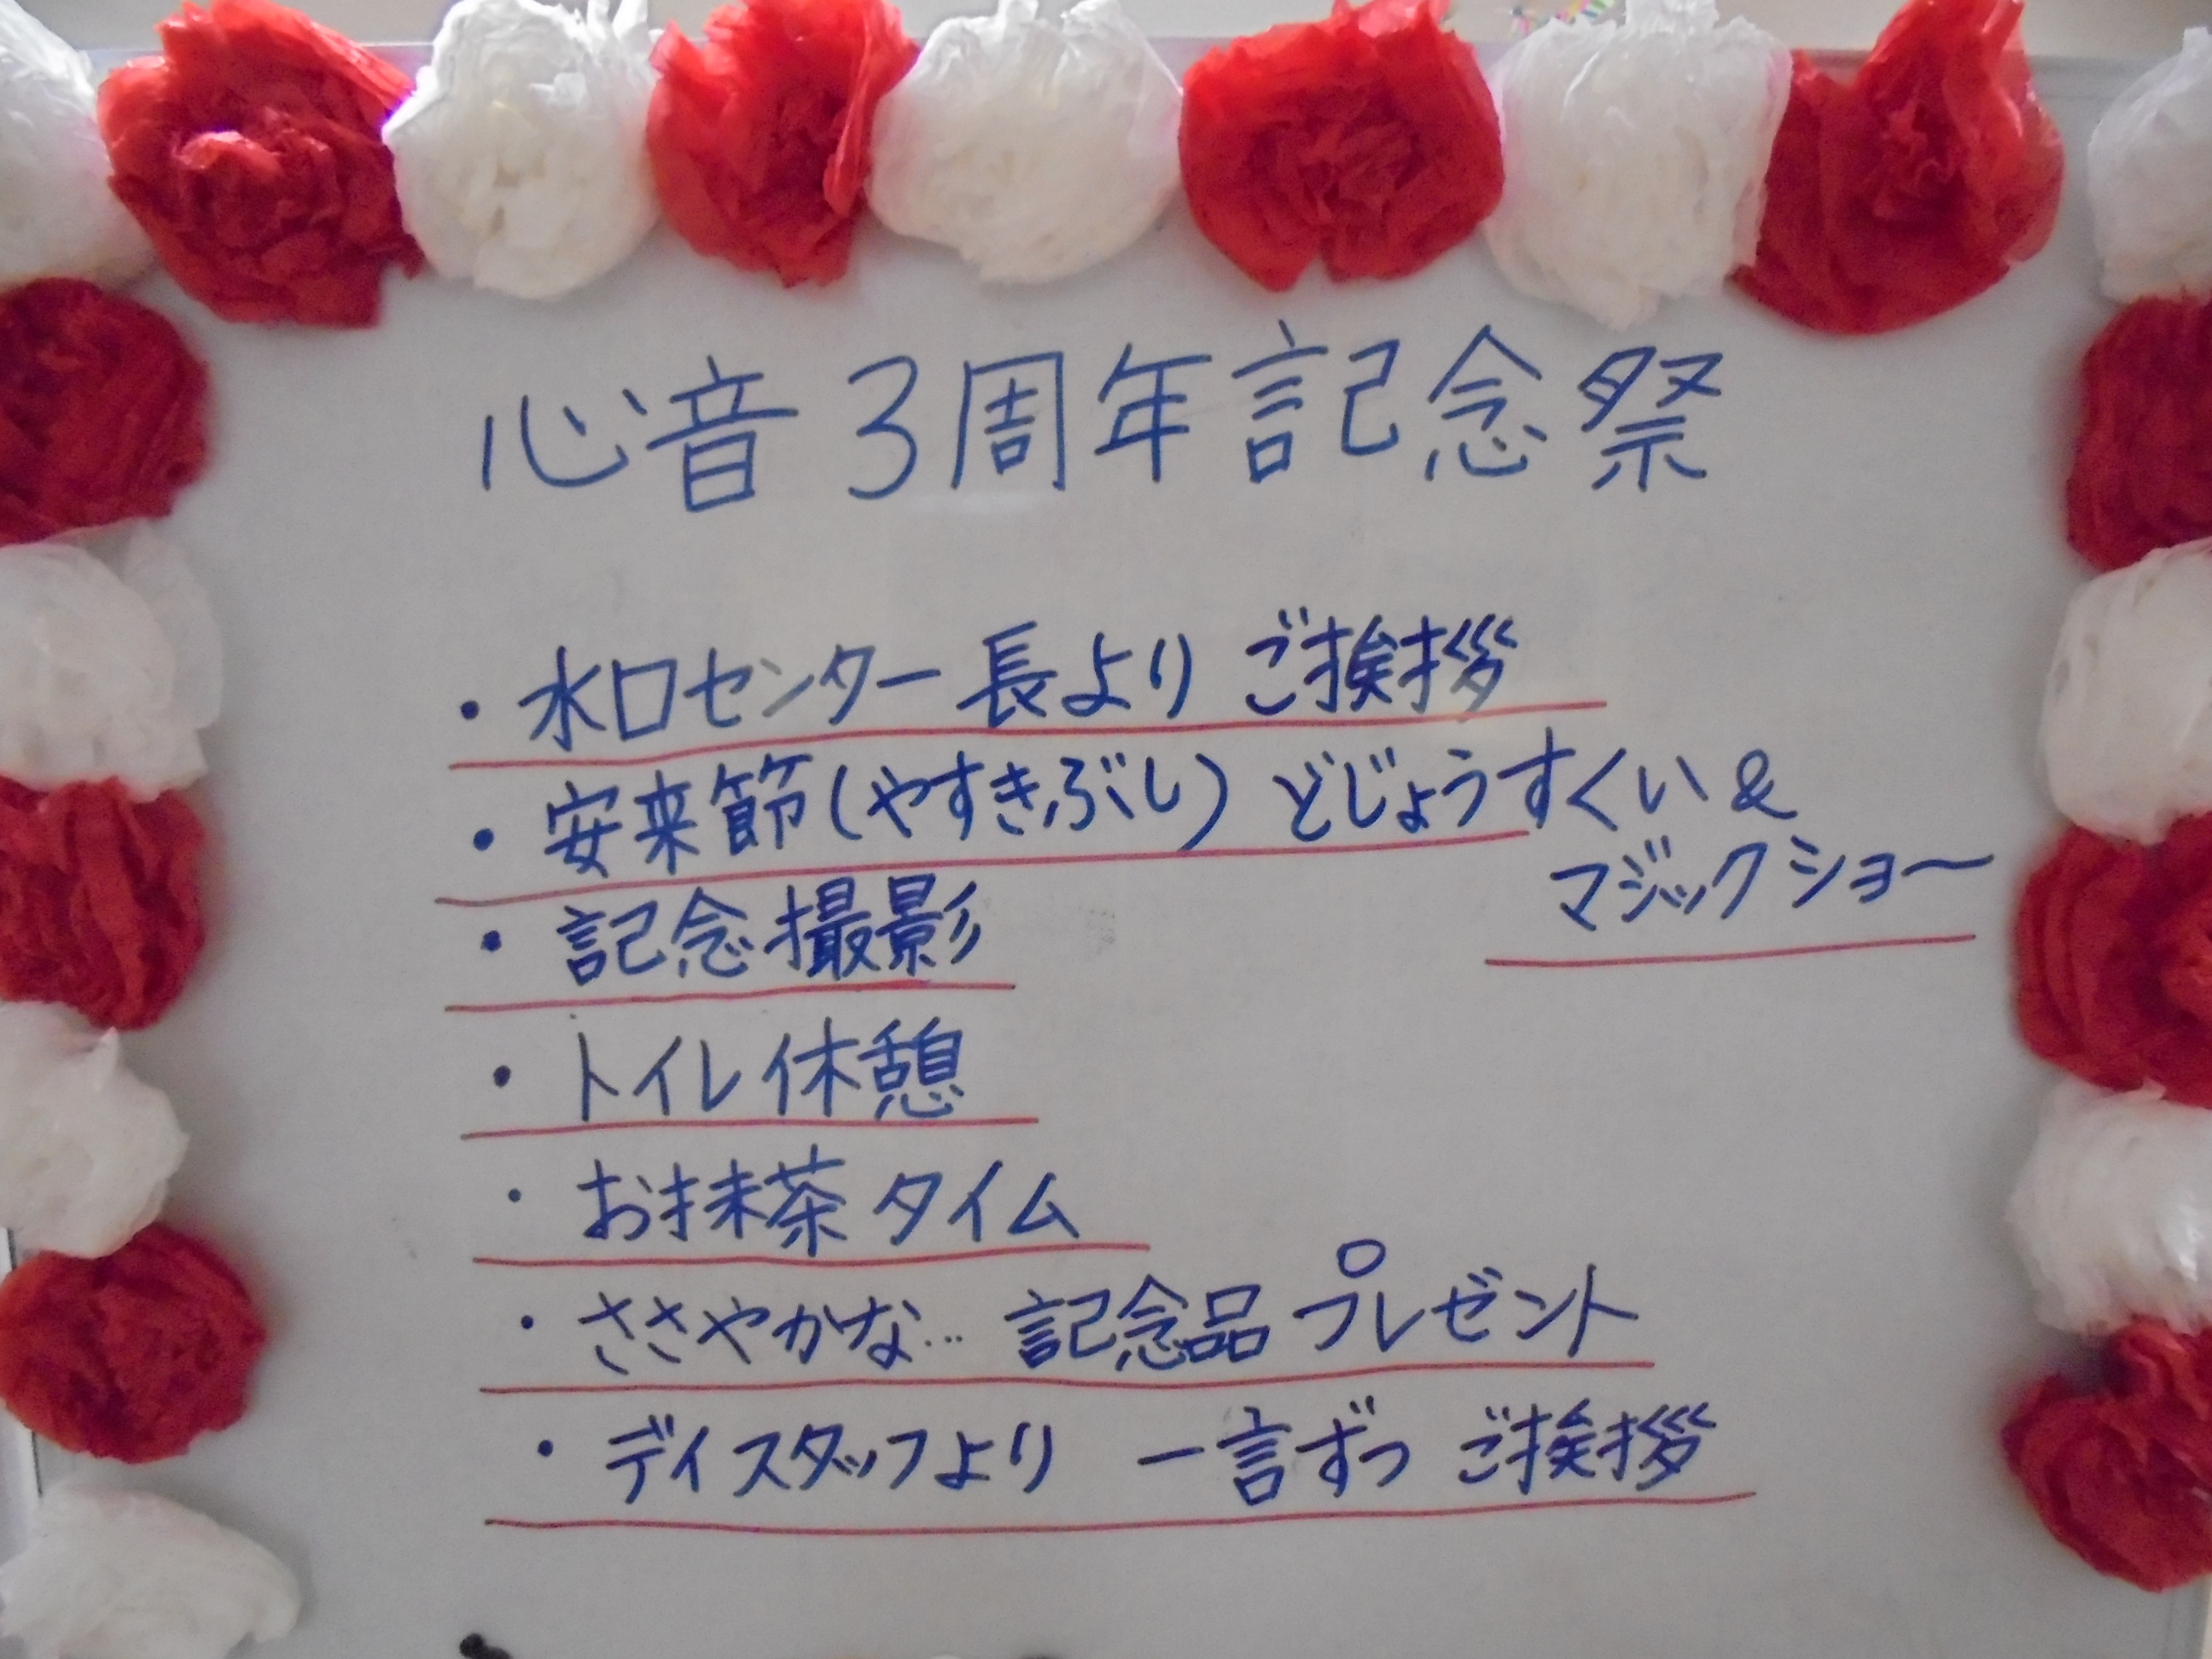 心音3周年記念祭
・水口センター長より ご挨拶
・安来節(やすきぶし) どじょうすくい&
マジックショー
・記念撮影
・トイレ休憩
・お抹茶タイム
・ささやかな… 記念品プレゼント
・デイスタッフより 一言ずつ ご挨拶